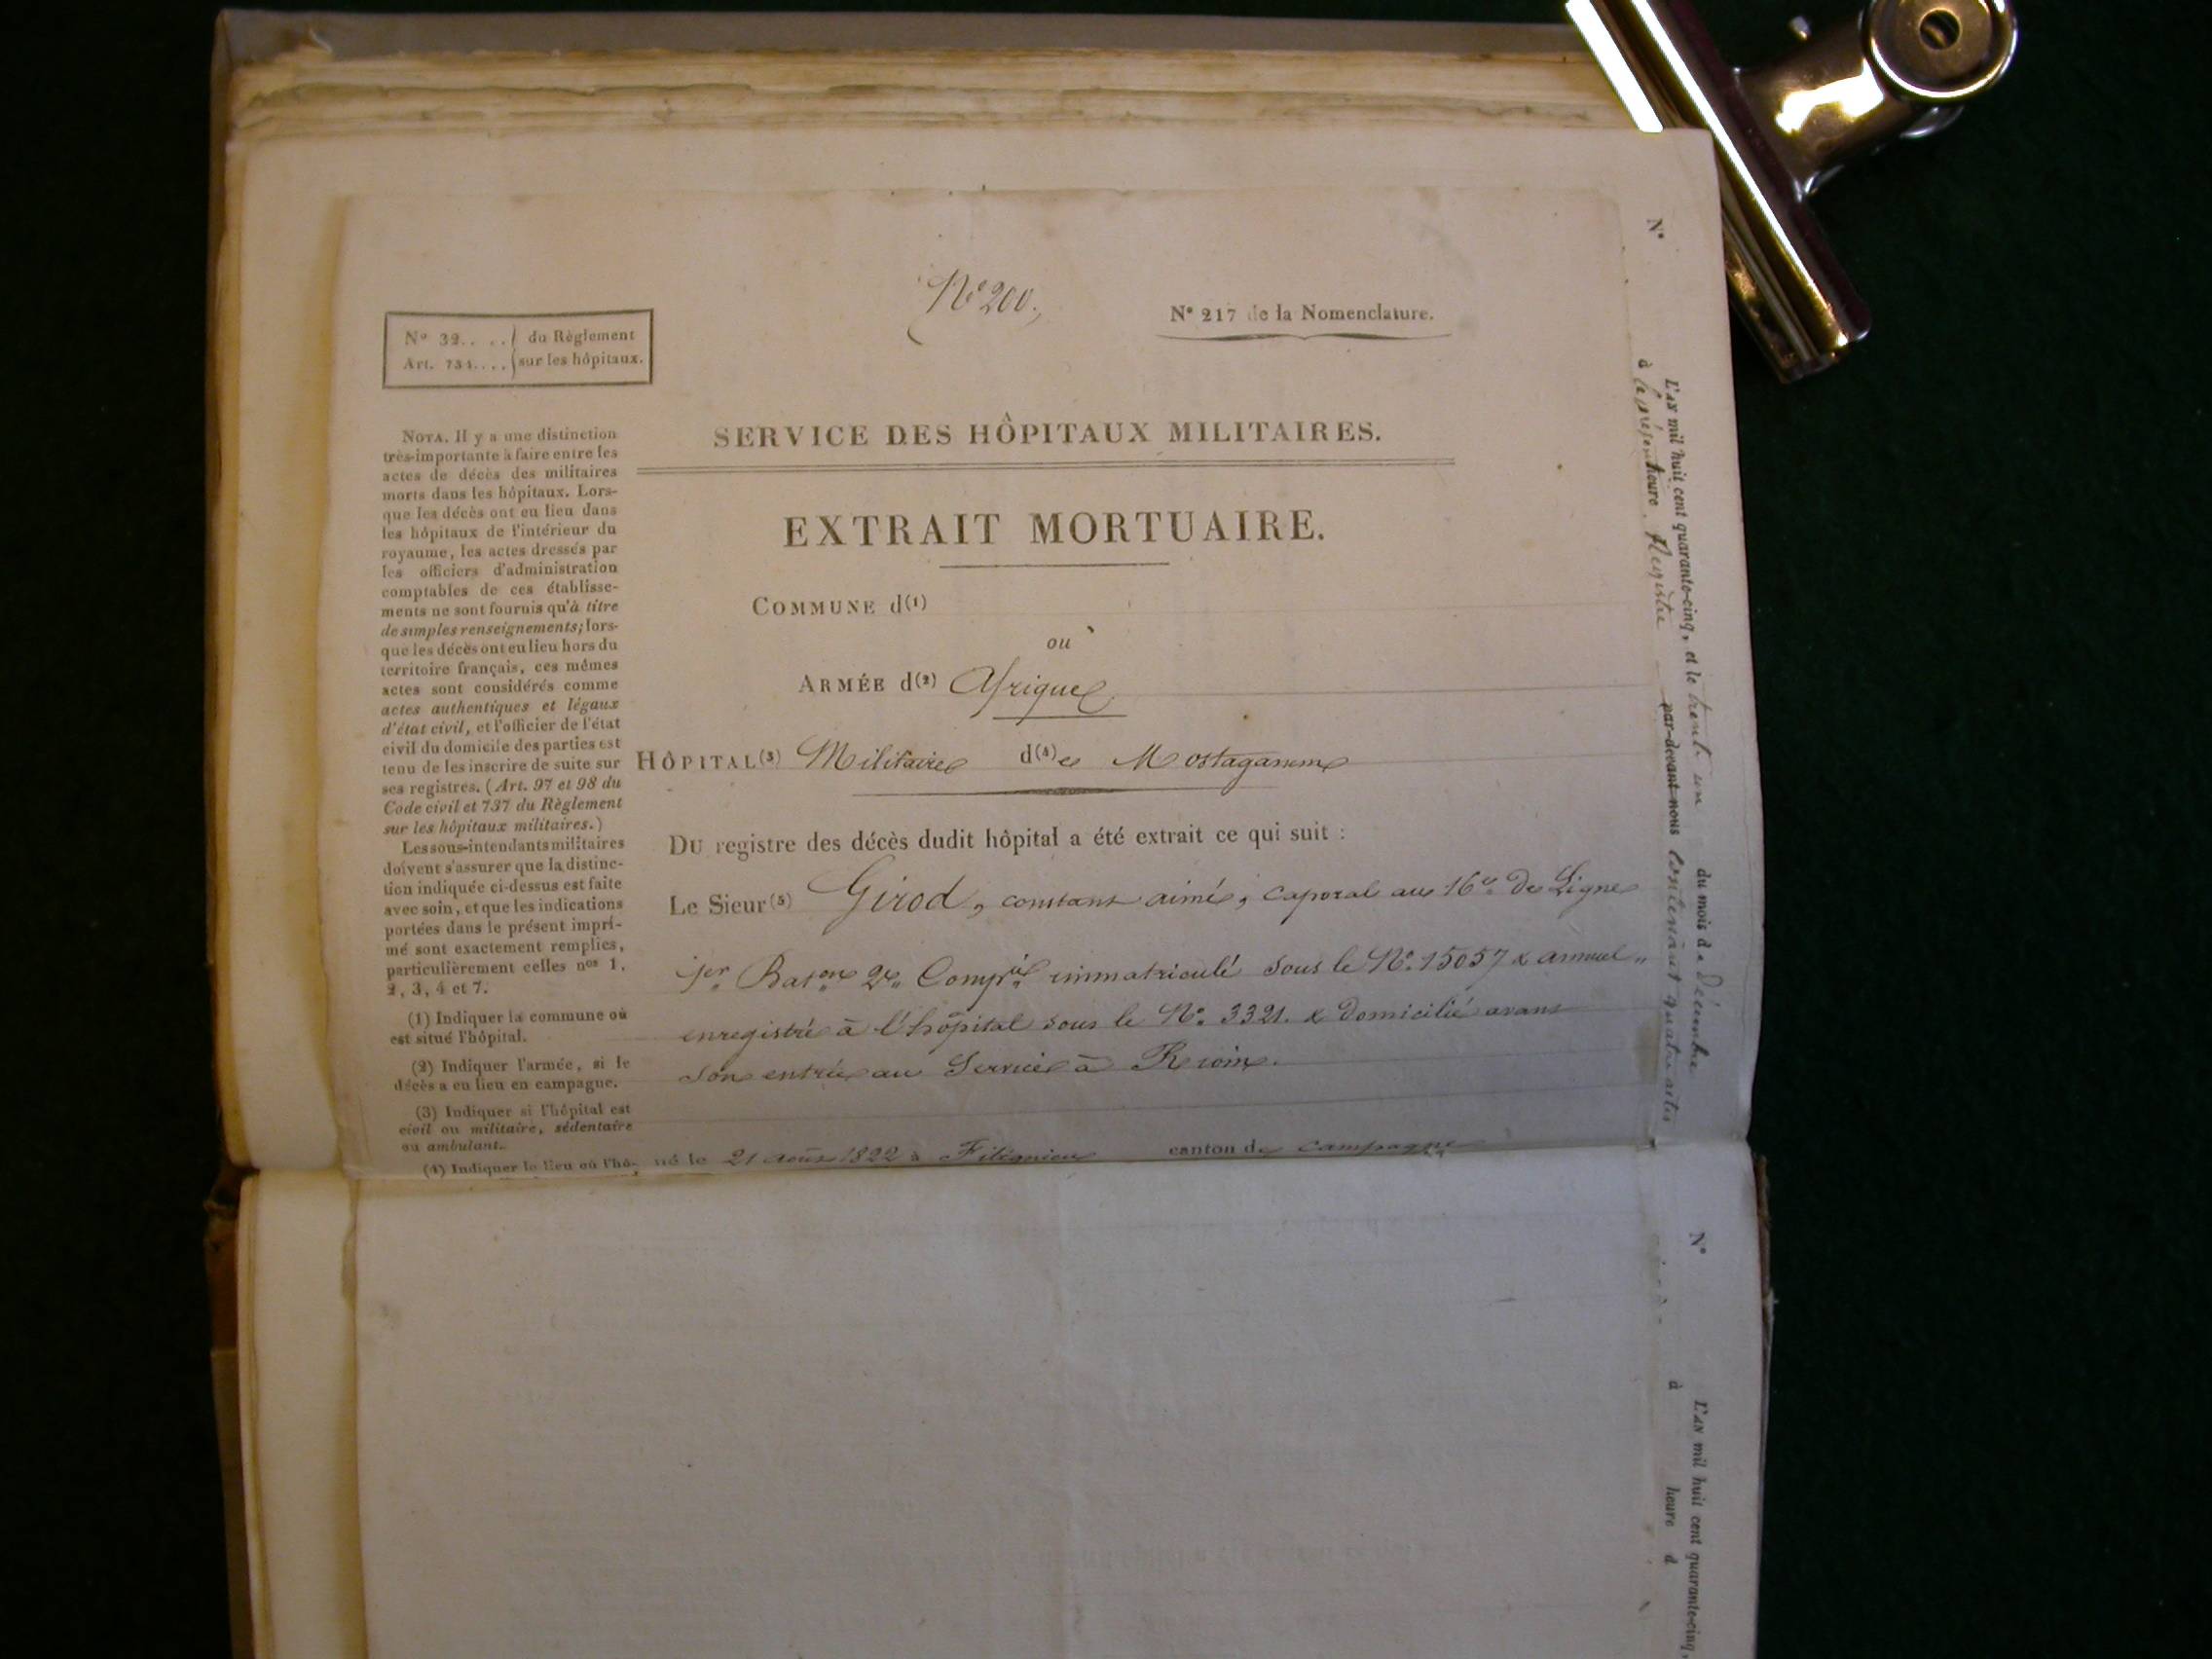 N° 200.
N° 217 de la Nomenclature.
N° 32.. ..} du Règlement
Art. 734....} sur les hôpitaux.
SERVICE DES HÔPITAUX MILITAIRES.
EXTRAIT MORTUAIRE.
COMMUNE d(1)
ou
ARMÉE d(2) Afrique
HÔPITAL(3) Militaire d(4)e Mostaganem
DU registre des décès dudit hôpital a été extrait ce qui suit :
Le Sieur(5) Girod, constant aimé, caporal au 16e de Ligne
1er Baton 2e Compie immatriculé sous le N° 15057 & annuel
enregistré à l'hôpital sous le N° 3321. & Domicilié avant
son entrée au Service à
né le 21 août 1822 à canton de campagne
NOTA. Il y a une distinction
très-importante à faire entre les
actes de décès des militaires
morts dans les hôpitaux. Lors-
que les décès ont eu lieu dans
les hôpitaux de l'intérieur du
royaume, les actes dressés par
les officiers d'administration
comptables de ces établisse-
ments ne sont fournis qu'à titre
de simples renseignements; lors-
que les décès ont eu lieu hors du
territoire français, ces mêmes
actes sont considérés comme
actes authentiques et légaux
d'état civil, et l'officier de l'état
civil du domicile des parties est
tenu de les inscrire de suite sur
ses registres. (Art. 97 et 98 du
Code civil et 737 du Règlement
sur les hôpitaux militaires.)
Les sous-intendants militaires
doivent s'assurer que la distinc-
tion indiquée ci-dessus est faite
avec soin, et que les indications
portées dans le présent impri-
mé sont exactement remplies,
particulièrement celles nos 1,
2, 3, 4 et 7.
(1) Indiquer la commune où
est situé l'hôpital.
(2) Indiquer l'armée, si le
décès a eu lieu en campagne.
(3) Indiquer si l'hôpital est
civil ou militaire, sédentaire
ou ambulant.
(4) Indiquer le lieu où l'hô-
N°
L'AN mil huit cent quarante-cinq, et le trente un du mois de Décembre
à le présent heure Registre par-devant nous contenant quatre actes
N°
L'AN mil huit cent quarante-cinq,
à heure d